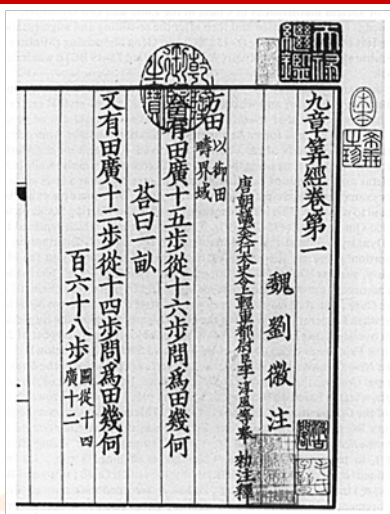 天祿繼鑑
乾隆御覽之寶
九章筭經卷第一
魏劉徽注
唐朝議大夫行太史令上輕車都尉臣李淳風等奉 勑注釋
方田以御田
疇界域
今有田廣十五步從十六步問爲田幾何
荅曰一畝
又有田廣十二步從十四步問爲田幾何
百六十八步圖從十四
廣十二